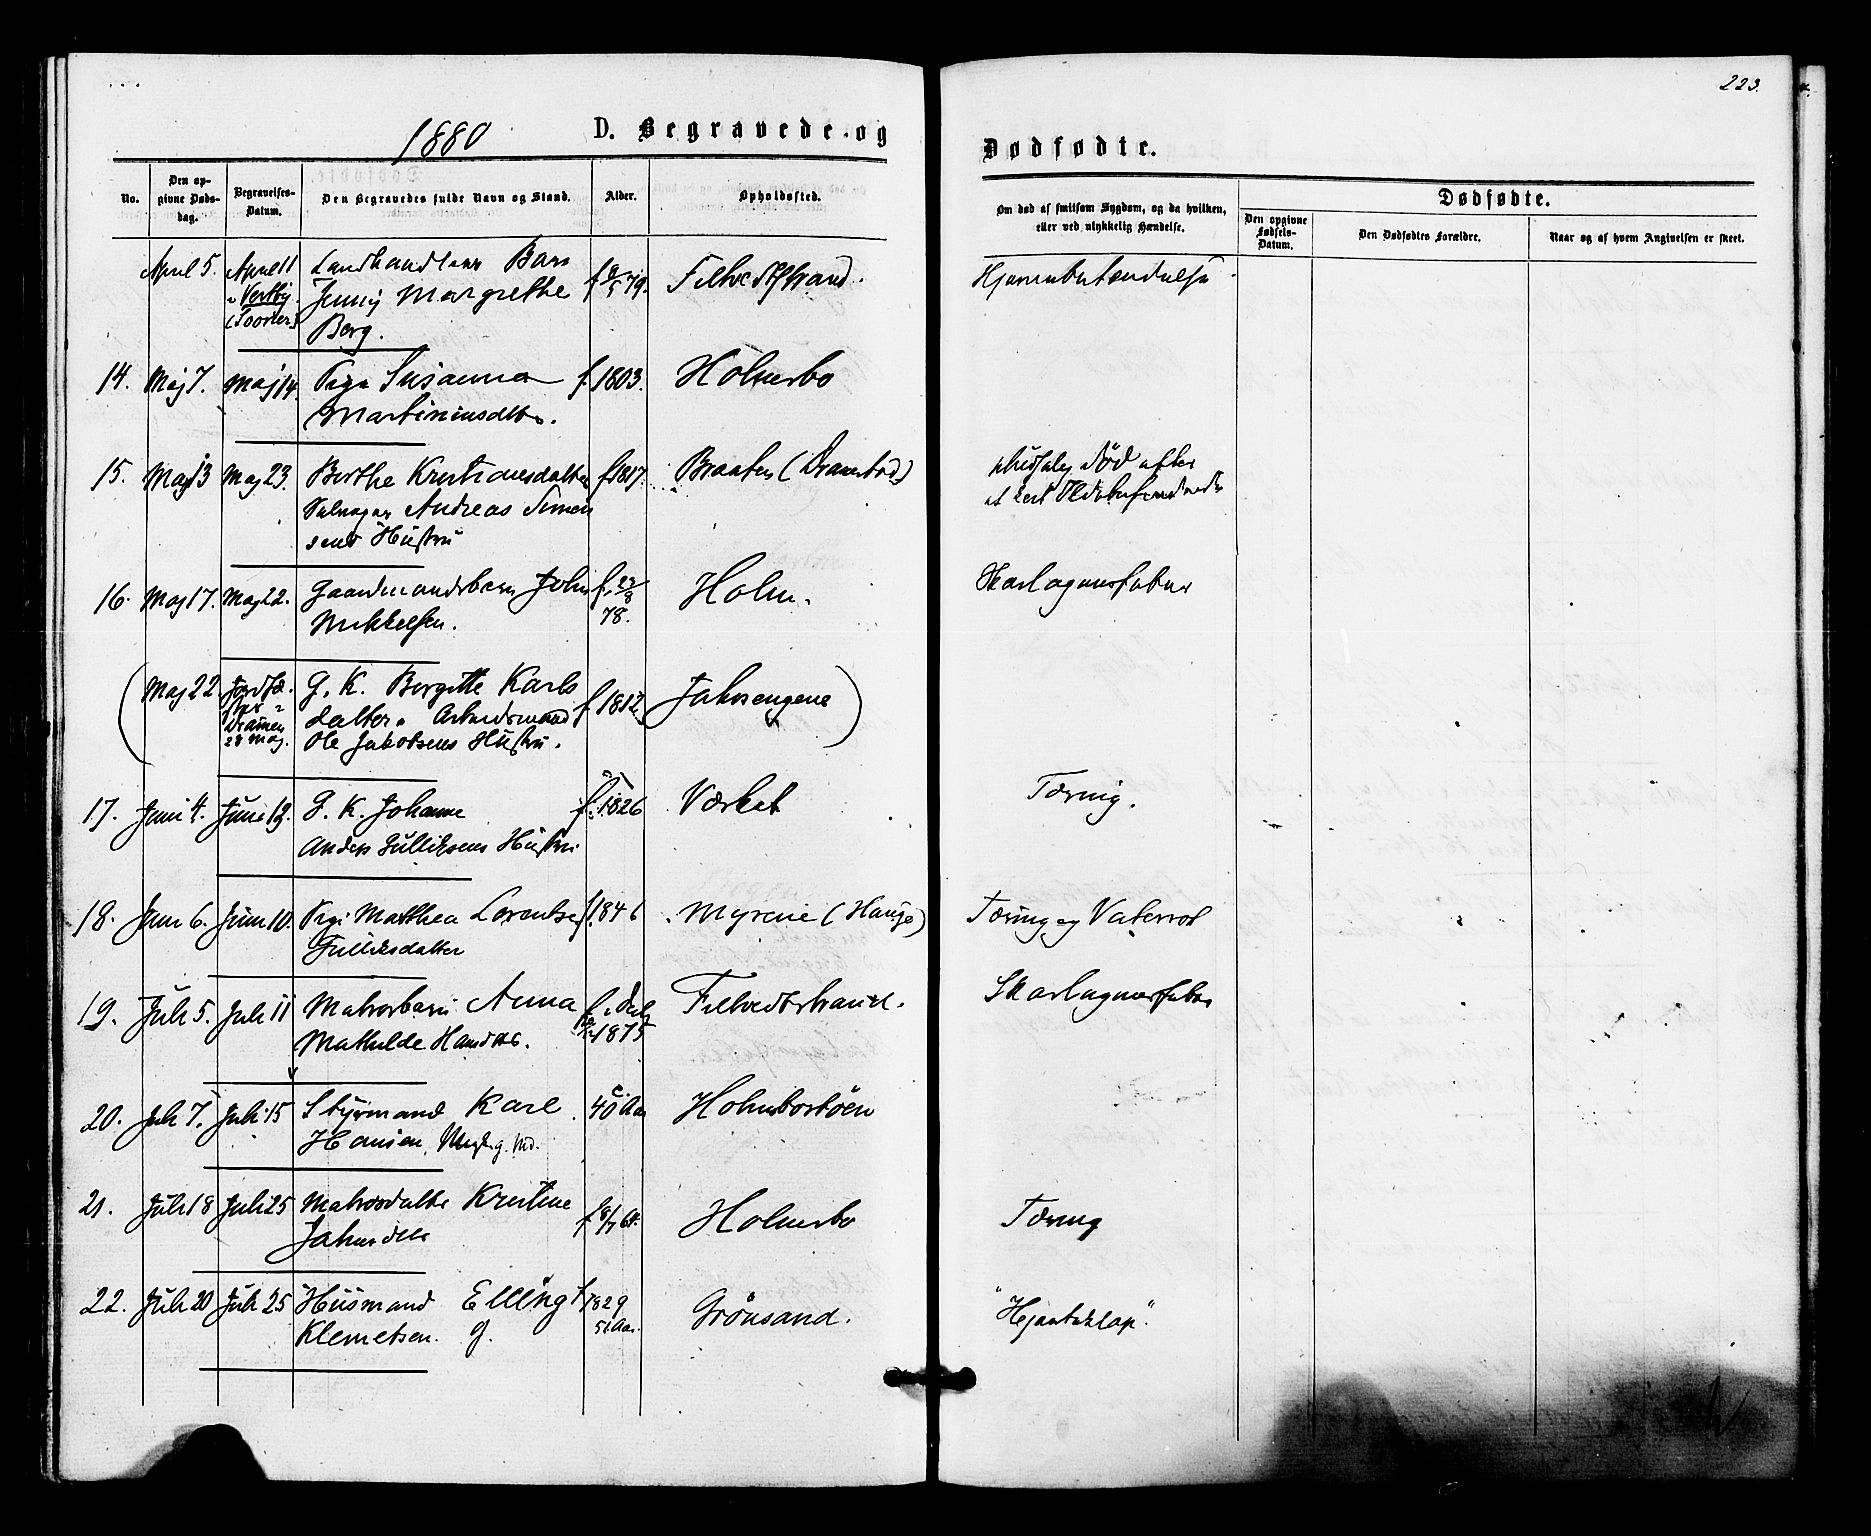 223.
1880 D. Begravede og Dødfødte.
No. Den opgivne Dødsdag. Begravelses-Datum. Den Begravedes fulde Navn og Stand. Alder. Opholdssted. Om død af smitsom Sygdom, og da hvilken, eller ved ulykkelig Hændelse.
Dødfødte.
Den opgivne Fødsels-Datum. Den Dødfødtes Forældre. Naar og af hvem Angivelsen er skeet.
April 5. April 11 Landhandler Barn Filtvedtstrand. Hjernebetændelse.
Vestby Jenny Margrethe
Berg.
14. Maj 7. Maj 14. Pige Susanna f. 1803. Holmsbo
Martiniusdtr.
15. Maj 13 Maj 23. Berthe Kristiansdatter f 1817. Braaten (Tronstad) død efter
Andreas Simen
sens Hustru
16. Maj 17. Maj 22. Gaardmandsbarn John f. 23/8 Holm. Skarlagensfeber
Mikkelsen. 78.
(Maj 22 Jordfæ- G. K. Borgitte Karls f. 1812. )
Dramen datter. Arbeidsmand
28 Maj. Ole Jakobsens Hustru.
17. Juni 4. Juni 13. G. K. Johanne f. 1826 Værket Tæring.
Anders Gulliksens Hustru
18. Juni 6. Juni 10. Pige Matthea Lorentse f. 1846 Myrene (Hauge) Tæring og Vatersot
Gulliksdatter
19. Juli 5. Juli 11 Matrosbarn Anna f. Filtvedtstrand. Skarlagensfeber
Mathilde Hansdtr. 1875
20. Juli 7. Juli 15 Styrmand Karl 40 Aar Holmsbostøen
Hansen,
21. Juli 18 Juli 25 Matrosdatter Kristine Holmsbo Tæring
22. Juli 20 Juli 25 Husmand Elling f 1829 Grønsand. "Hjerteslag".
Klemetsen. G. 51 Aar.